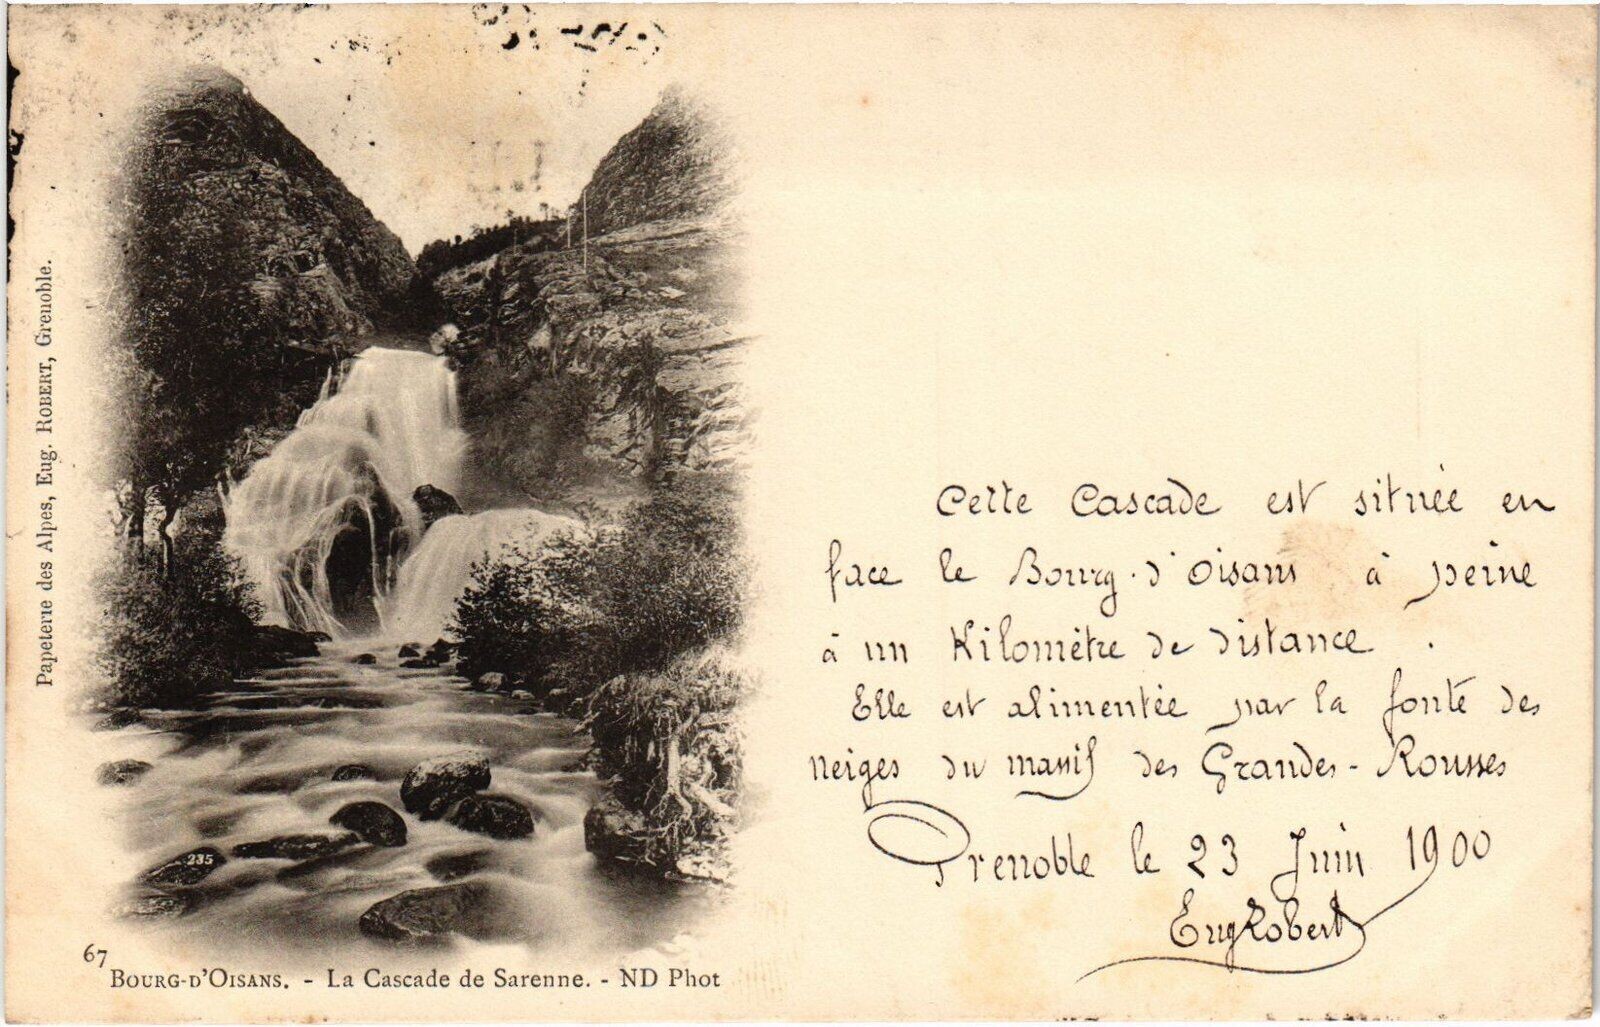 Papeterie des Alpes, Eug. ROBERT, Grenoble.
Cette Cascade est située en
face le Bourg-d'Oisans à peine
à un Kilomètre de distance.
Elle est alimentée par la fonte des
neiges du massif des Grandes-Rousses
Grenoble le 23 Juin 1900
Eug Robert
235
67
BOURG-D'OISANS. - La Cascade de Sarenne. - ND Phot